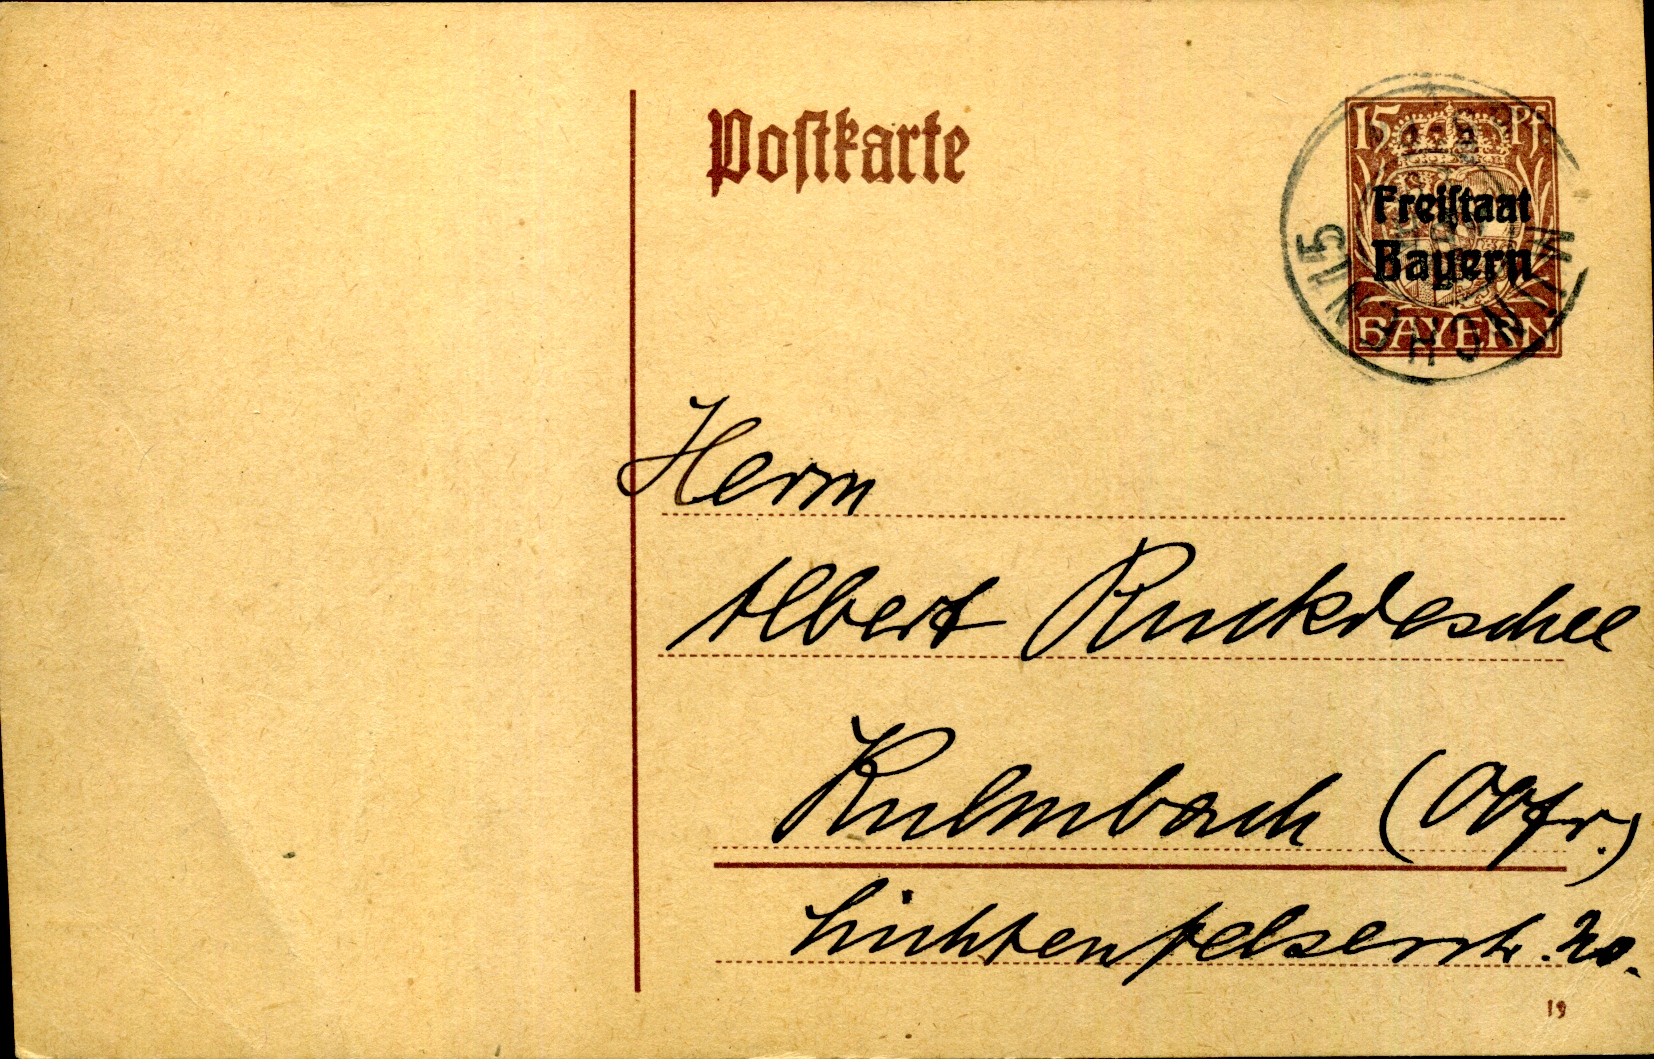 Postkarte
15 Pf
Freistaat
Bayern
BAYERN
MÜNCHEN 15
Herrn
Albert Ruckdeschel
Kulmbach (Obfr.)
Lichtenfelserstr. 20.
19